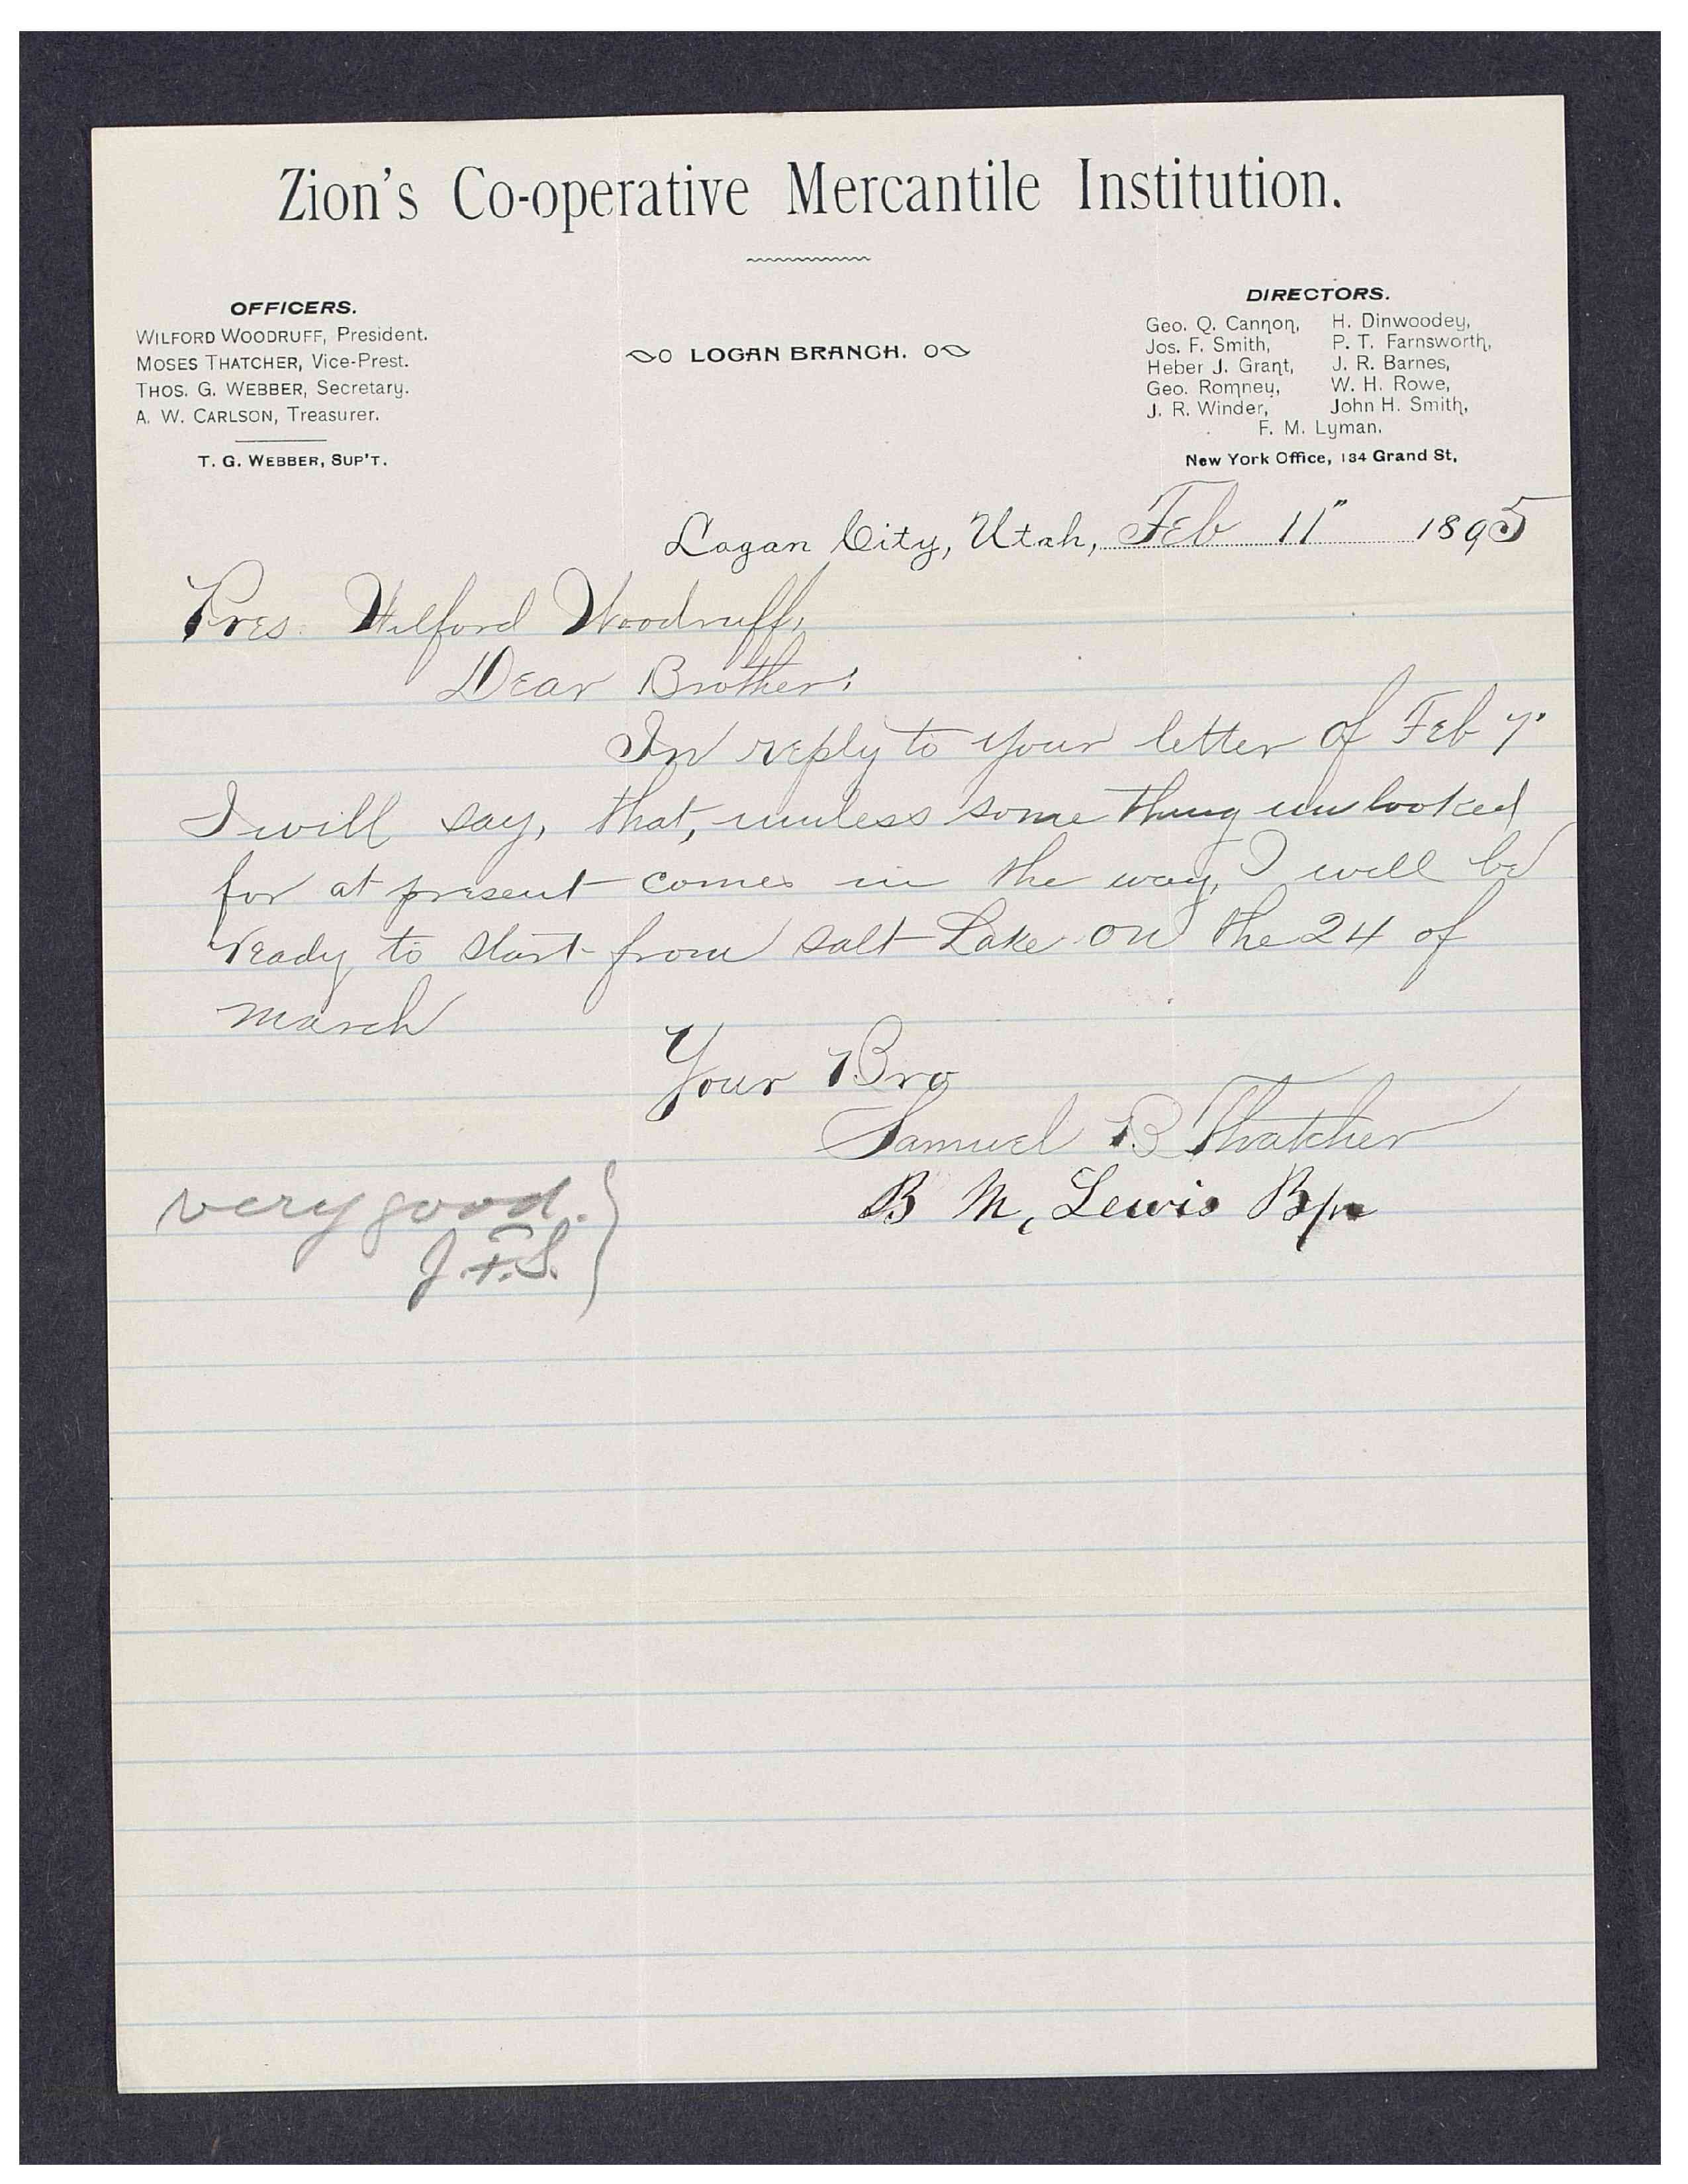 Zion's Co-operative Mercantile Institution.
OFFICERS.
WILFORD WOODRUFF, President.
MOSES THATCHER, Vice-Prest.
THOS. G. WEBBER, Secretary.
A. W. CARLSON, Treasurer.
T. G. WEBBER, SUP'T.
LOGAN BRANCH.
DIRECTORS.
Geo. Q. Cannon, H. Dinwoodey,
Jos. F. Smith, P. T. Farnsworth,
Heber J. Grant, J. R. Barnes,
Geo. Romney, W. H. Rowe,
J. R. Winder, John H. Smith,
F. M. Lyman.
New York Office, 134 Grand St,
Logan City, Utah, Feb 11" 1895
Pres. Wilford Woodruff,
Dear Brother;
In reply to your letter of Feb 7"
I will say, that, unless some thing unlooked
for at present comes in the way, I will be
ready to start from Salt Lake on the 24 of
March
Your Bro
Samuel B Thatcher
B M, Lewis Bp
very good.
J.F.S.